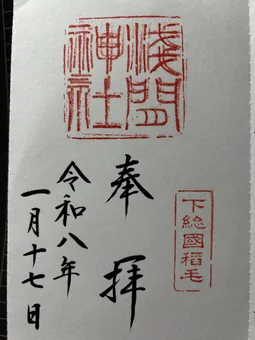 浅間神社
奉拝
下総國稲毛
令和八年
一月十七日